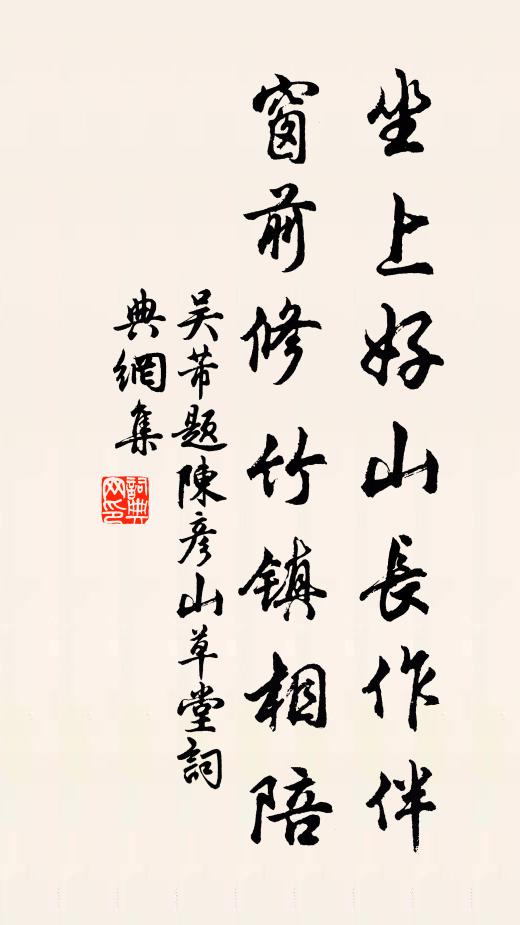 坐上好山長作伴
窗前修竹鎮相陪
吴芾題陳彦山草堂詞
典網集
詞典网印